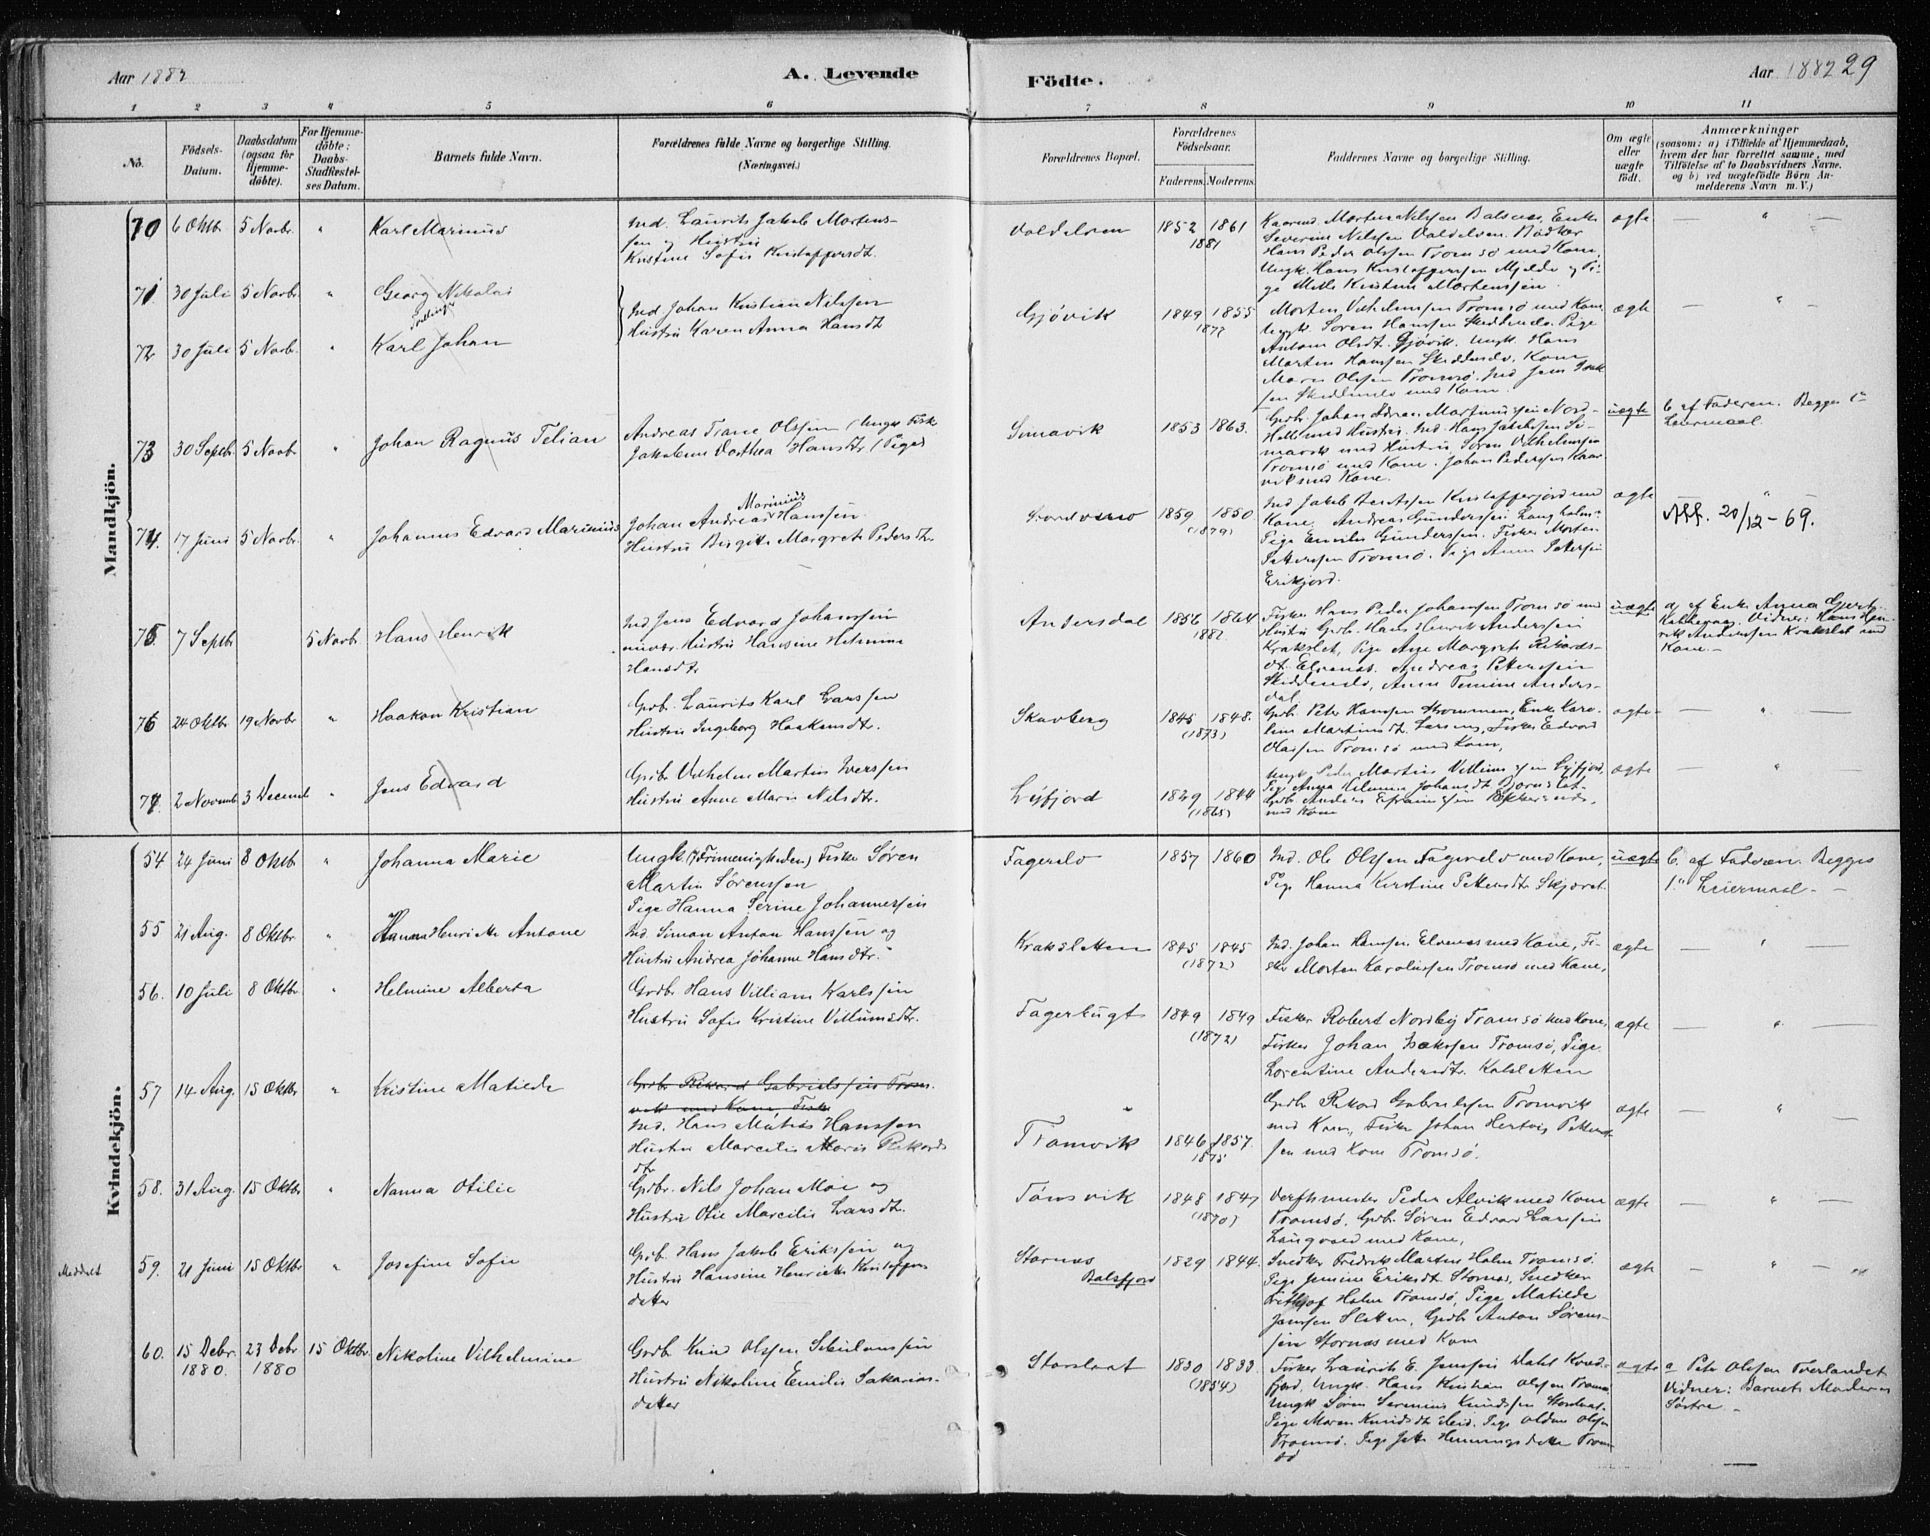 Aar 1882
A. Levende
Födte.
Aar 1882 29
1 2 3 4 5 6 7 8 9 10 11
No.
Födsels-
Datum.
Daabsdatum
(ogsaa for
Hjemme-
döbte).
For Hjemme-
döbte:
Daabs-
Stadfæstel-
ses Datum.
Barnets fulde Navn.
Forældrenes fulde Navne og borgerlige Stilling.
(Næringsvei.)
Forældrenes Bopæl.
Forældrenes
Födselsaar.
Faderens. Moderens.
Faddernes Navne og borgerlige Stilling.
Om ægte
eller
uægte
födt.
Anmærkninger
(saasom: a) i Tilfælde af Hjemmedaab,
hvem der har forrettet samme, med
Tilföielse af to Daabsvidners Navne,
og b) ved uægtefödte Börn An-
melderens Navn m. V.)
Mandkjön.
70 6 Oktb 5 Novbr. " Karl Marinus
Ind. Laurits Jakob Mortens-
sen og Hustru
Kristine Sofie Kristoffersdt.
Valdelven 1852 1861
1881
Morten Nilssen Balsnes, Enke
Severine Nilssen Valdelven. Bödker
Hans Peder Olssen Tromsø med Kone,
Ungk. Hans Kristoffersen Mjelde og Pi-
ge Mette Kristine Mortenssen.
ægte — " —
71 30 Juli 5 Novbr " Georg Nikolai
Tvillinger
72 30 Juli 5 Novb. " Karl Johan
Ind Johan Kristian Nilssen
Hustru Karen Anna Hansdt
Gjövik 1849 1855
1872
Morten Vilhelmssen Tromsø med Kone
Ungk. Søren Hanssen Skiddenelv. Pige
Antone Olsdt. Gjøvik. Ungk. Hans
Martin Hanssen Skiddenelv, Kone
Maren Olssen Tromsø. Ind Jens Isak
sen Skiddenelv med Kone.
ægte — " —
73 30 Septb. 5 Novb " Johan Ragnus Telian
Andreas Trane Olssen (Ungk. Fisk
Jakobine Dorthea Hansdtr (Pige)
Simavik 1853 1863.
Gdbr. Johan Adrian Martinussen Nord-
med Hustru. Ind. Hans Jakobssen Si-
mavik med Hustru, Søren Vilhelmssen
Tromsø med Kone. Johan Pederssen Kaar
vik med Kone.
uægte b. af Faderen. Begges 1ste
Leiermaal.
74. 17 Juni 5 Novbr. " Johannes Edvard Marinius
Marinius
Johan Andreas Hanssen
Hustru Birgitte Margrete Pedersdtr.
1859 1850
(1879)
Ind Jakob Kristofferjord med
Kone, Andreas Gunderssen Langholm
Pige Emilie Gunderssen. Fisker Morten
Petterssen Tromsø. Pige Anna Pettersen
Erikjord.
ægte "
Aff. 20/12-69.
75. 7 Septbr 5 Novb. Hans Henrik
Ind Jens Edvard Johanssen
Hustru Hansine Helmine
Hansdtr
Andersdal 1856 1864
1882
Fisker Hans Peder Johansen Tromsø med
Hustru Gdb. Hans Henrik Anderssen
Krakslet, Pige Ane Margret Rikards-
dt. Elvenes. Andreas Petterssen
Skiddenelv, Anne Temine Anders-
dal.
uægte a) af Enke Anna Gjert.
Vidner: Hans Hen-
rik Anderssen Krakslet med
Kone.—
76 24 Oktbr 19 Novbr " Haakon Kristian
Gdb. Laurits Karl Larssen
Hustru Ingeborg Haakonsdt.
Skavberg 1845 1848.
(1873)
Gdb. Peter Hansen Strømmen, Enke Karo-
line Martinsdt. Fisker Edvard
Olassen Tromsø med Kone,
ægte — " —
77. 2 Novemb 3 Decemb " Jens Edvard
Gdbr Vilhelm Martin Iverssen
Hustru Anne Marie Nilsdtr.
Lyfjord 1829 1844
(1865)
Ungk. Peder Martin Lyfjord,
Pige Anna Helmine Johansdt
Gdb Anders
med Kone
ægte — " —
Kvindekjön.
54 24 Juni 8 Oktb " Johanna Marie
Ungk (Frimenigheden) Fisker Søren
Martin Sørenssen
Pige Hanna Serine Johannessen
Fagerelv 1857 1860
Ind. Ole Olssen Fagerelv med Kone,
Pige Hanna Kirstine Pettersdtr
uægte b. af Faderen. Begges
1ste Leiermaal. —
55 21 Aug. 8 Oktbr " Hanna Henriette Antone
Ind Simon Anton Hanssen og
Hustru Andrea Johanne Hansdtr.
Krakslettem 1845 1845
(1872)
Ind. Johan Hanssen Elvenes med Kone, Fi-
sker Morten Karolussen Tromsø med Kone,
ægte — " —
56. 10 Juli 8 Oktbr " Helmine Alberta
Gdbr Hans Villiam Karlssen
Hustru Sofie Kristine Villumsdtr.
Fagerbugt 1849 1849
(1872)
Fisker Robert Nordby Tromsø med Kone,
Fisker Johan Isakssen Tromsø, Pige
Lorentine Andersdt.
ægte — " —
57 14 Aug. 15 Oktbr " Kristine Matilde
Gdbr Rikard Gabrielssen Trom
vik med Kone, Fisker
Ind. Hans Matias Hanssen
Hustru Marcelie Marie Rikards
dtr
"
Tromvik 1846 1857.
1875
Gdbr Rikard Gabrielssen Tromvik
med Kone, Fisker Johan Hertvig Petters
sen med Kone Tromsø.
ægte — " —
58. 31 Aug. 15 Oktbr " Nanna Otilie
Gdbr. Nils Johan Moe og
Hustru Otie Marcelie Larsdt.
Tønsvik 1848 1847
(1870)
Verftmester Peder Alvik med Kone
Tromsø, Gdb. Søren Edvard Larssen
med Kone,
ægte — " —
Meddelt
59. 21 Juni 15 Oktbr " Josefine Sofie
Gdb. Hans Jakob Erikssen og
Hustru Hansine Henriette Kristoffers
datter
Stornæs
Balsfjord
1829 1844.
Snedker Fredrik Martin Holm Tromsø.
Pige Jensine Eriksdt Stornæs, Snedker
Frithjof Holm Tromsø, Pige Matilde
Jenssen Sletten, Gdbr Anton Sørens-
sen Stornæs med Kone
ægte — " —
60. 15 Debr. 23 Debr 15 Oktbr. Nikoline Vilhelmine
1880. 1880
Gdb. Knud Olssen
Hustru Nikoline Emilie Sakarias-
datter
Storslaat 1830 1833.
(1854)
Fisker Laurits E. Jenssen Dahl Kvad-
fjord, Ungk. Hans Kristian Olssen Tromsø
Ungk Søren Severinius Knudssen
Pige Maren Knudsdt. Pige Oldine Olsen
Tromsø. Pige Henningsdatter Trom-
sø
ægte a Petr Olssen Tverlandet
Vidner: Barnets Moders
Søstre.—